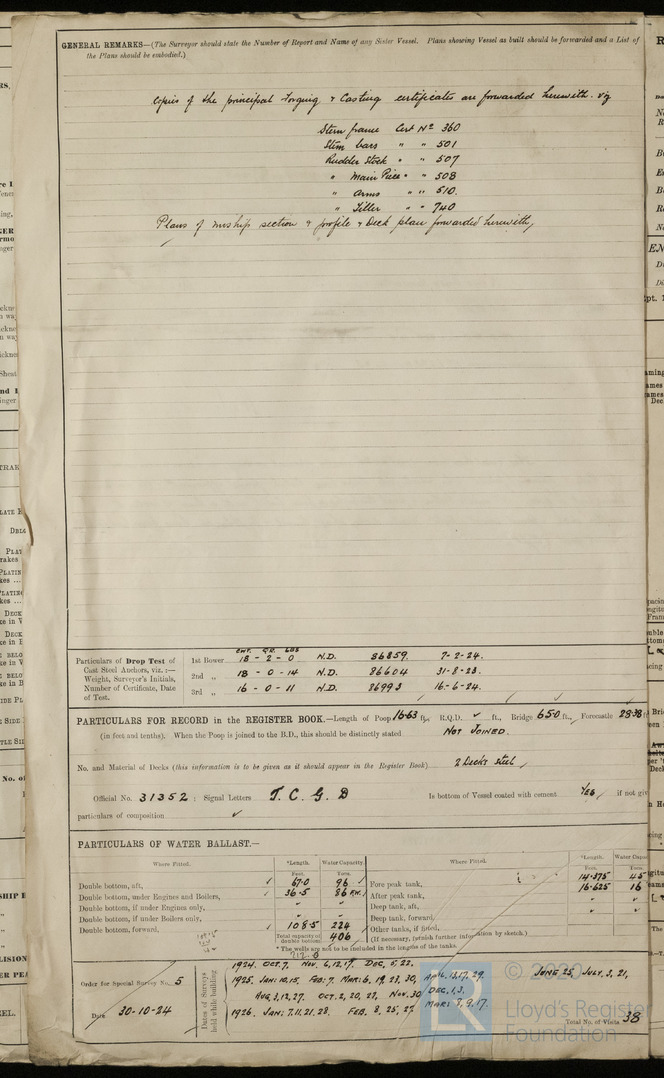 GENERAL REMARKS—(The Surveyor should state the Number of Report and Name of any Sister Vessel. Plans showing Vessel as built should be forwarded and a List of
the Plans should be embodied.)
Copies of the principal Forging & Casting certificates are forwarded herewith. viz
Stern frame Cert No 360
Stem bars " " 501
Rudder Stock " " 507
" Main Piece " " 508
" Arms " " 510.
" Tiller " " 740
Plans of midship section & profile & Deck plan forwarded herewith,
CWT. QR. LBS
Particulars of Drop Test of
Cast Steel Anchors, viz.:—
Weight, Surveyor's Initials,
Number of Certificate, Date
of Test.
1st Bower 18 - 2 - 0 N.D. 86859. 7-2-24.
2nd " 18 - 0 - 14 N.D. 86604 31-8-23.
3rd " 16 - 0 - 11 N.D. 86993 16-6-24.
PARTICULARS FOR RECORD in the REGISTER BOOK.—Length of Poop 16.63 ft., R.Q.D. ✓ ft., Bridge 65.0 ft., Forecastle 28.38 ft
(in feet and tenths). When the Poop is joined to the B.D., this should be distinctly stated NOT JOINED.
No. and Material of Decks (this information is to be given as it should appear in the Register Book) 2 Decks steel
Official No. 31352 ; Signal Letters T. C. G. D Is bottom of Vessel coated with cement YES if not giv
particulars of composition ✓
PARTICULARS OF WATER BALLAST.—
Where Fitted. *Length. Water Capacity. Where Fitted. *Length. Water Capac
Feet. Tons. Feet. Tons.
Double bottom, aft, 67.0 96 Fore peak tank, 14.375 45
Double bottom, under Engines and Boilers, 36.5 86 F.W. After peak tank, 16.625 16
Double bottom, if under Engines only, " " Deep tank, aft, " "
Double bottom, if under Boilers only, " " Deep tank, forward, " "
Double bottom, forward, 108.5 224 Other tanks, if fitted,
Total capacity of double bottom 406 (If necessary, furnish further information by sketch.)
* The wells are not to be included in the lengths of the tanks.
212.0
Order for Special Survey No. 5
Date 30-10-24
Dates of Surveys held while building
1924. OCT. 7. NOV. 6, 12, 17. DEC. 5, 22.
1925. JAN: 10, 15. FEB: 7. MAR: 6, 19, 23, 30, APRIL. 12, 17, 29. JUNE 25, JULY. 3, 21,
AUG 3, 12, 27. OCT. 2, 20, 23, NOV. 30 DEC. 1, 3.
1926. JAN: 7, 11, 21, 28. FEB. 8, 25, 27. MAR: 3, 9, 17.
Total No. of Visits 38
© 2020
Lloyd's Register
Foundation